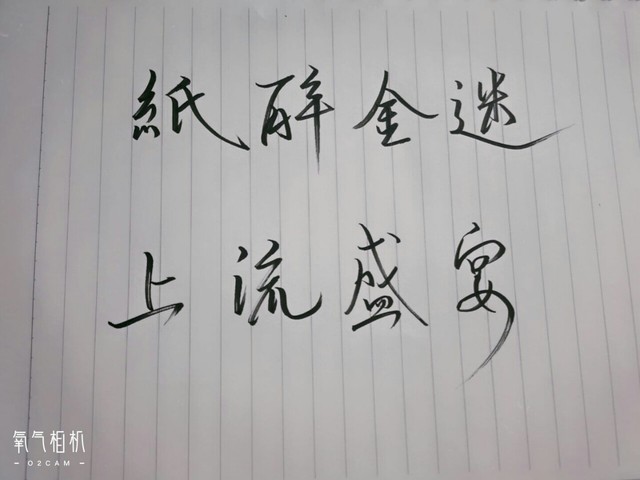 紙醉金迷
上流盛宴
氧气相机
- O2CAM -